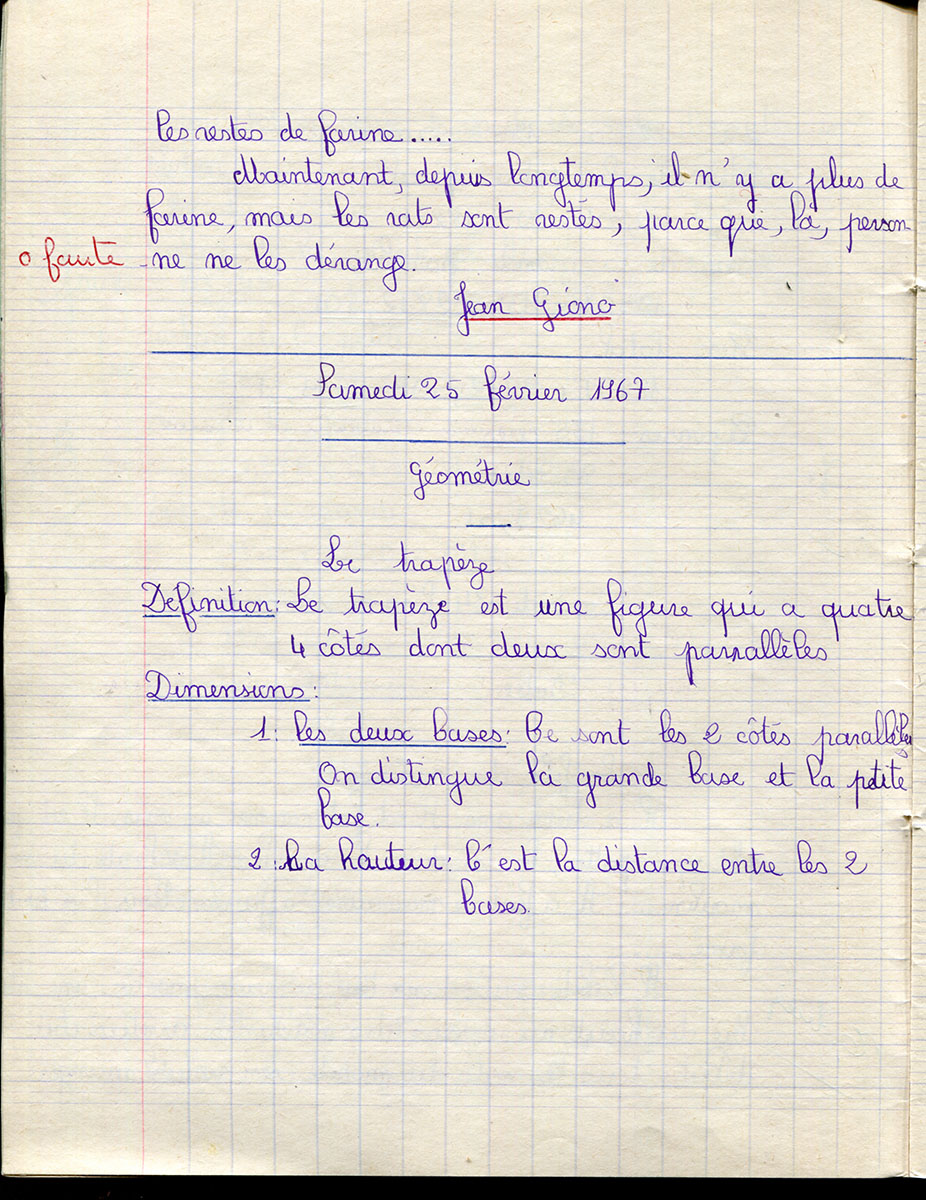 les restes de farine.....
Maintenant, depuis longtemps, il n'y a plus de
farine, mais les rats sont restés, parce que, là, person
0 faute -ne ne les dérange.
Jean Giono
Samedi 25 février 1967
Géométrie
Le trapèze
Définition: Le trapèze est une figure qui a quatre
4 côtés dont deux sont parrallèles
Dimensions:
1: les deux bases: Ce sont les 2 côtés parallèles
On distingue la grande base et la petite
base.
2: La hauteur: C'est la distance entre les 2
bases.